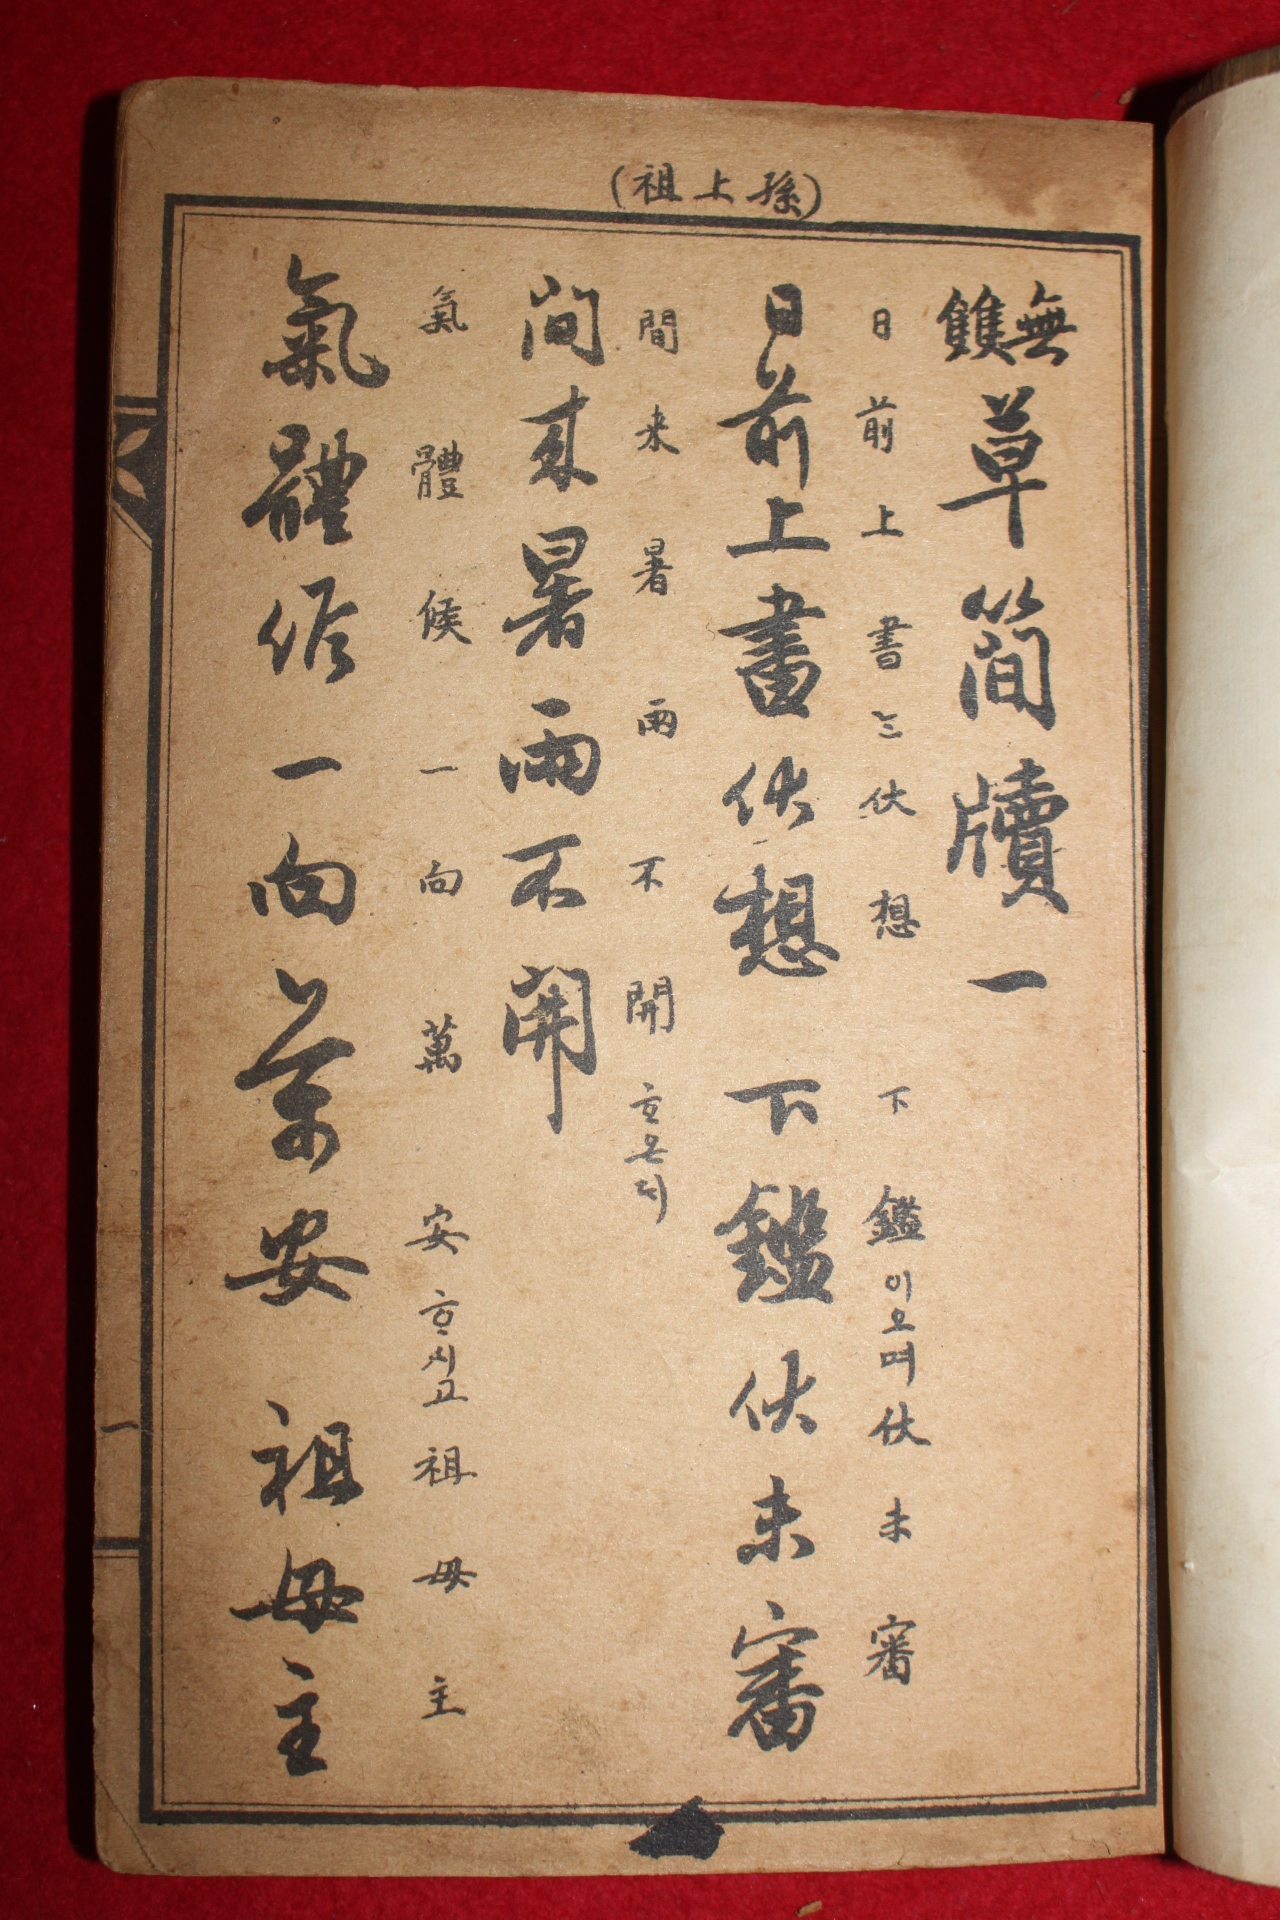 (孫上祖)
無雙草簡牘一
日前上書ᄂᆞᆫ伏想 下鑑이오며伏未審
日前上書伏想 下鑑伏未審
間来暑雨不開ᄒᆞ온ᄃᆡ
間来暑雨不開
氣體候一向萬安ᄒᆞ시고祖母主
氣體候一向萬安 祖母主
一